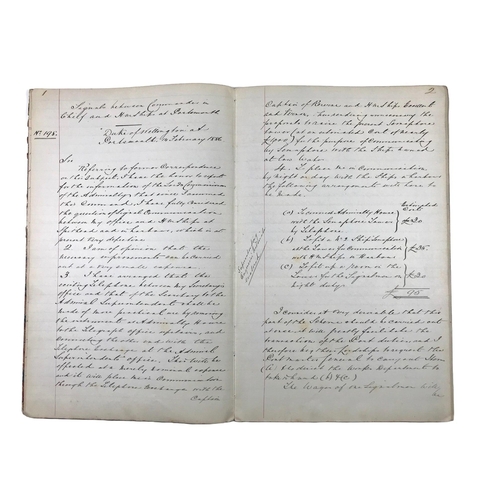 1
Signals between Commander in
Chief and H.M. Ships at Portsmouth
No. 198.
"Duke of Wellington" at
Portsmouth, February 1886
Sir
Referring to former Correspondence
on this Subject, I have the honor to report
for the information of the Lords Commissioners
of the Admiralty, that since I assumed
this Command, I have fully considered
the question of Signal Communication
between my office, and H.M. Ships at
Spithead and in harbour, which is at
present very defective
2. I am of opinion that the
necessary improvements can be carried
out at a very small expense.
3. I have arranged that the
existing Telephone between my Secretary's
office and that of the Secretary to the
Admiral Superintendent shall be
made of more practical use by moving
the instrument at Admiralty House
to the Telegraph office upstairs, and
connecting the other end with the
Telephone Exchange at the Admiral
Superintendent's office. This will be
effected at a merely nominal expense
and it will place me in Communication
through the Telephone Exchange with the
Captain
2
Captain of Reserve and H.M. Ship
and
proposals to raise the present Semaphore
tower (at an estimated Cost of nearly
for the purpose of Communicating
by Semaphore with the Ships
at low Water
4. To place me in Communication
by night or day with the Ships in harbour
the following arrangements will have to
be made.
Estimated
Cost
(a) To connect Admiralty House
with the Semaphore Tower
by Telephone
£20
(b) To fit a Ship Semaphore
at the Tower for Communication
with H.M. Ships in Harbour
(c) To fit up a room in the
Tower for the Signalmen on
night duty.
£ 95
I consider it very desirable that this
part of the Scheme should be carried out
as soon as it will greatly facilitate the
transaction of the Port duties and I
therefore beg their Lordships to request the
Post Master General to carry out Item
(a) & to direct the Works Department to
take in hand (b) & (c)
The Wages of the Signalmen